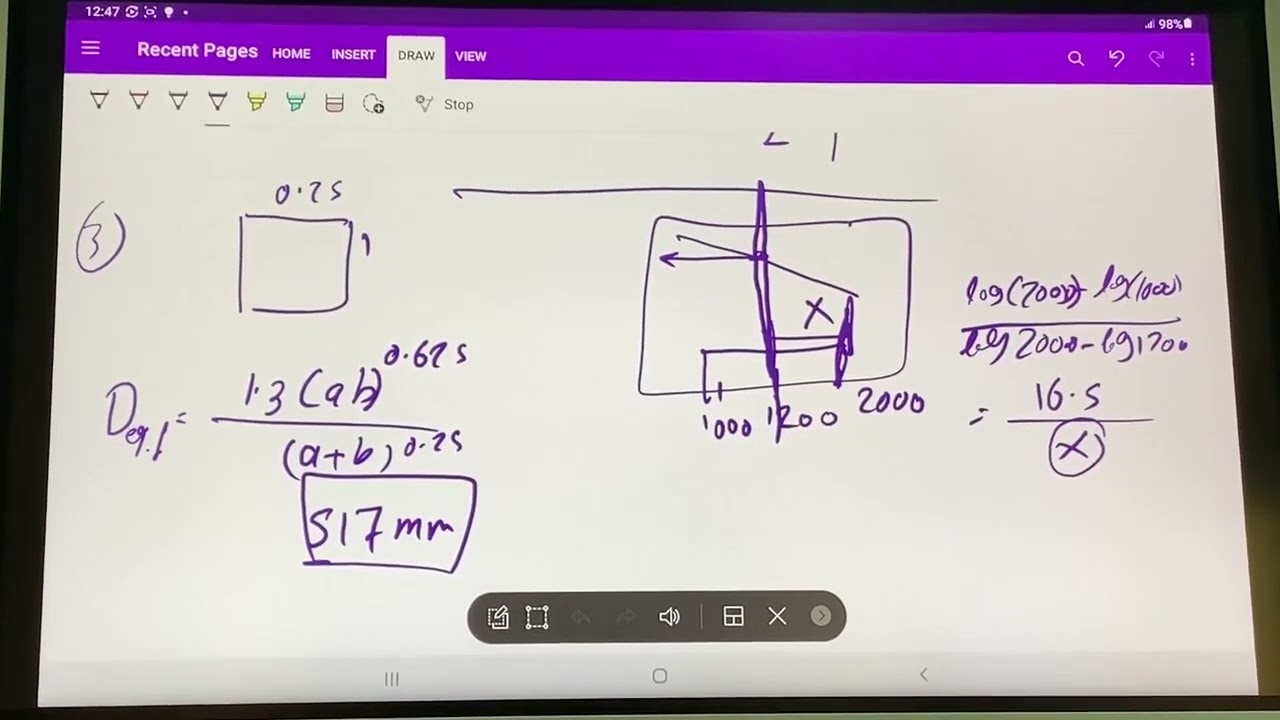 12:47
98%
Recent Pages HOME INSERT DRAW VIEW
Stop
3
0.25
1
Deq.f = 1.3 (ab)^0.625 / (a+b)^0.25
517 mm
2 1
X
1000 1200 2000
log(2000) - log(1000) / log 2000 - log 1200
= 16.5 / X